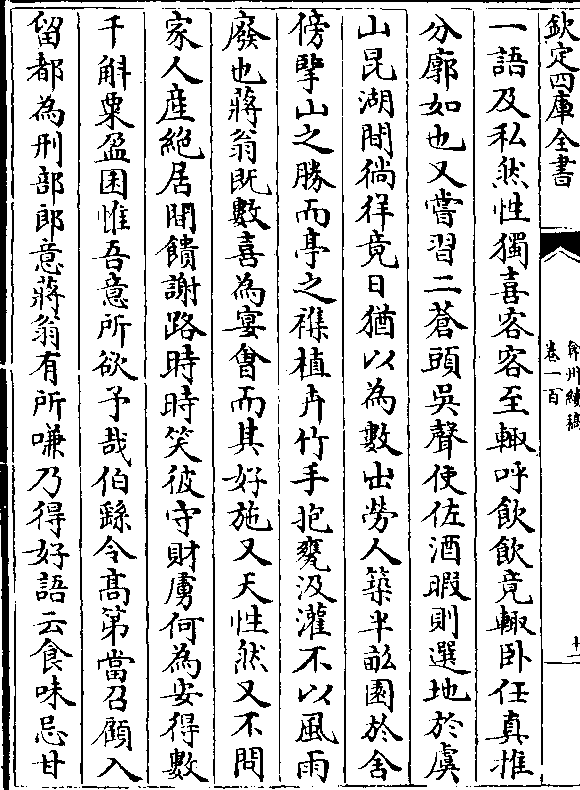 欽定四庫全書
弇州續稿
卷一百
十二
一語及私然性獨喜客客至輙呼飲飲竟輙卧任真推
分廓如也又嘗習二蒼頭吳聲使佐酒暇則選地於虞
山昆湖間徜徉竟日猶以為數出勞人築半畝園於舍
傍擥山之勝而亭之襍植卉竹手抱甕汲灌不以風雨
廢也蔣翁既數喜為宴會而其好施又天性然又不問
家人産絶居間饋謝路時時笑彼守財虜何為安得數
千斛粟盈囷惟吾意所欲予哉伯繇令髙第當召顧入
留都為刑部郎意蔣翁有所嗛乃得好語云食味忌甘